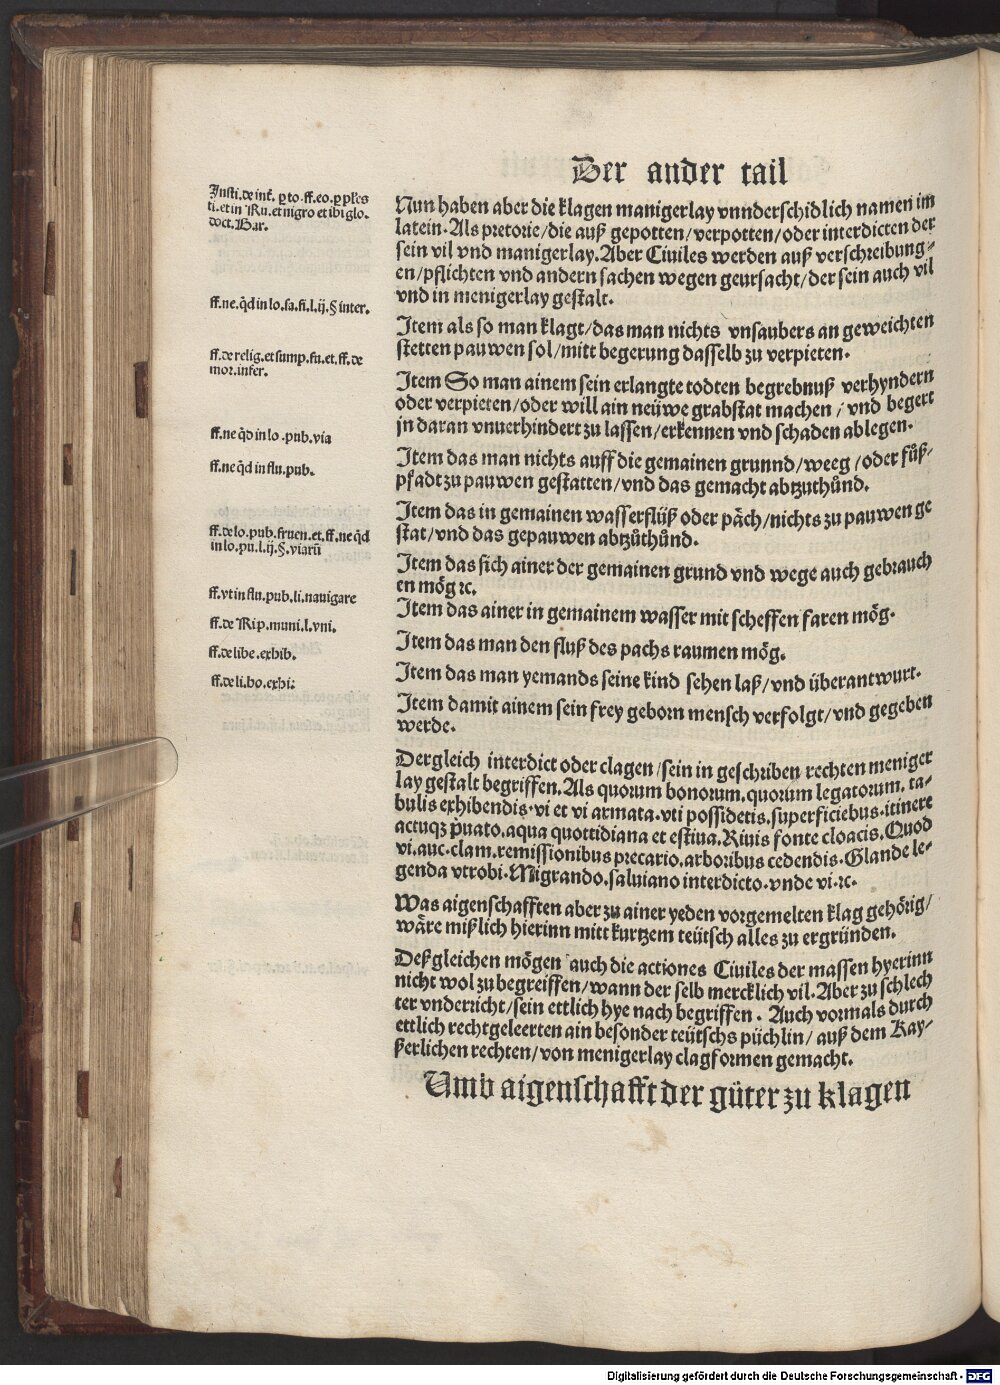 Der ander tail
Insti.de int̄. ꝑto.ff.eo.ꝑ pl̄es
ti.et in Ru.et nigro et ibi glo.
doct.Bar.
Nun haben aber die klagen manigerlay vnnderschidlich namen im
latein. Als pretorie/die auß gepotten/verpotten/oder interdicten der
sein vil vnd manigerlay. Aber Ciuiles werden auß verschreibung⸗
en/pflichten vnd andern sachen wegen geursacht/der sein auch vil
vnd in menigerlay gestalt.
ff.ne.q̄d in lo.sa.fi.l.ij.§ inter.
Item als so man klagt/das man nichts vnsaubers an geweichten
stetten pauwen sol/mitt begerung dasselb zu verpieten.
ff.de relig.et sump.fu.et.ff.de
mor.infer.
Item So man ainem sein erlangte todten begrebnuß verhyndern
oder verpieten/oder will ain neüwe grabstat machen / vnd begert
jn daran vnuerhindert zu lassen/erkennen vnd schaden ablegen.
ff.ne q̄d in lo .pub.via
Item das man nichts auff die gemainen grunnd/weeg /oder fůß⸗
pfadt zu pauwen gestatten/vnd das gemacht abtzuthůnd.
ff.ne q̄d in flu.pub.
Item das in gemainen wasserflüß oder päch/nichts zu pauwen ge
stat/vnd das gepauwen abtzůthůnd.
ff.de lo.pub.fruen.et.ff.ne q̄d
in lo.pu.l.ij.§.viarū
Item das sich ainer der gemainen grund vnd wege auch gebrauch
en mög ꝛc.
ff.vt in flu.pub.li.nauigare
Item das ainer in gemainem wasser mit scheffen faren mög.
ff.de Rip.muni.l.vni.
Item das man den fluß des pachs raumen mög.
ff.de libe.exhib.
Item das man yemands seine kind sehen laß/vnd überantwurt.
ff.de li.ho.exhi.
Item damit ainem sein frey geborn mensch verfolgt/vnd gegeben
werde.
Dergleich interdict oder clagen/sein in geschriben rechten meniger
lay gestalt begriffen. Als quorum bonorum.quorum legatorum. ta⸗
bulis exhibendis.vi et vi armata.vti possidetis.superficiebus.itinere
actuqꝫ p̄uato.aqua quottidiana et estiua.Riuis fonte cloacis.Quod
vi.auc.clam.remissionibus precario.arboribus cedendis.Glande le⸗
genda vtrobi.Migrando.saluiano interdicto.vnde vi.ꝛc.
Was aigenschafften aber zu ainer yeden vorgemelten klag gehörig/
wäre mißlich hierinn mitt kurtzem teütsch alles zu ergründen.
Deßgleichen mögen auch die actiones Ciuiles der massen hyerinn
nicht wol zu begreiffen/wann der selb mercklich vil. Aber zu schlech
ter vnderricht/sein ettlich hye nach begriffen. Auch vormals durch
ettlich rechtgeleerten ain besonder teütschs püchlin/ auß dem Kay⸗
ßerlichen rechten/von menigerlay clagformen gemacht.
Umb aigenschafft der güter zu klagen
Digitalisierung gefördert durch die Deutsche Forschungsgemeinschaft - DFG